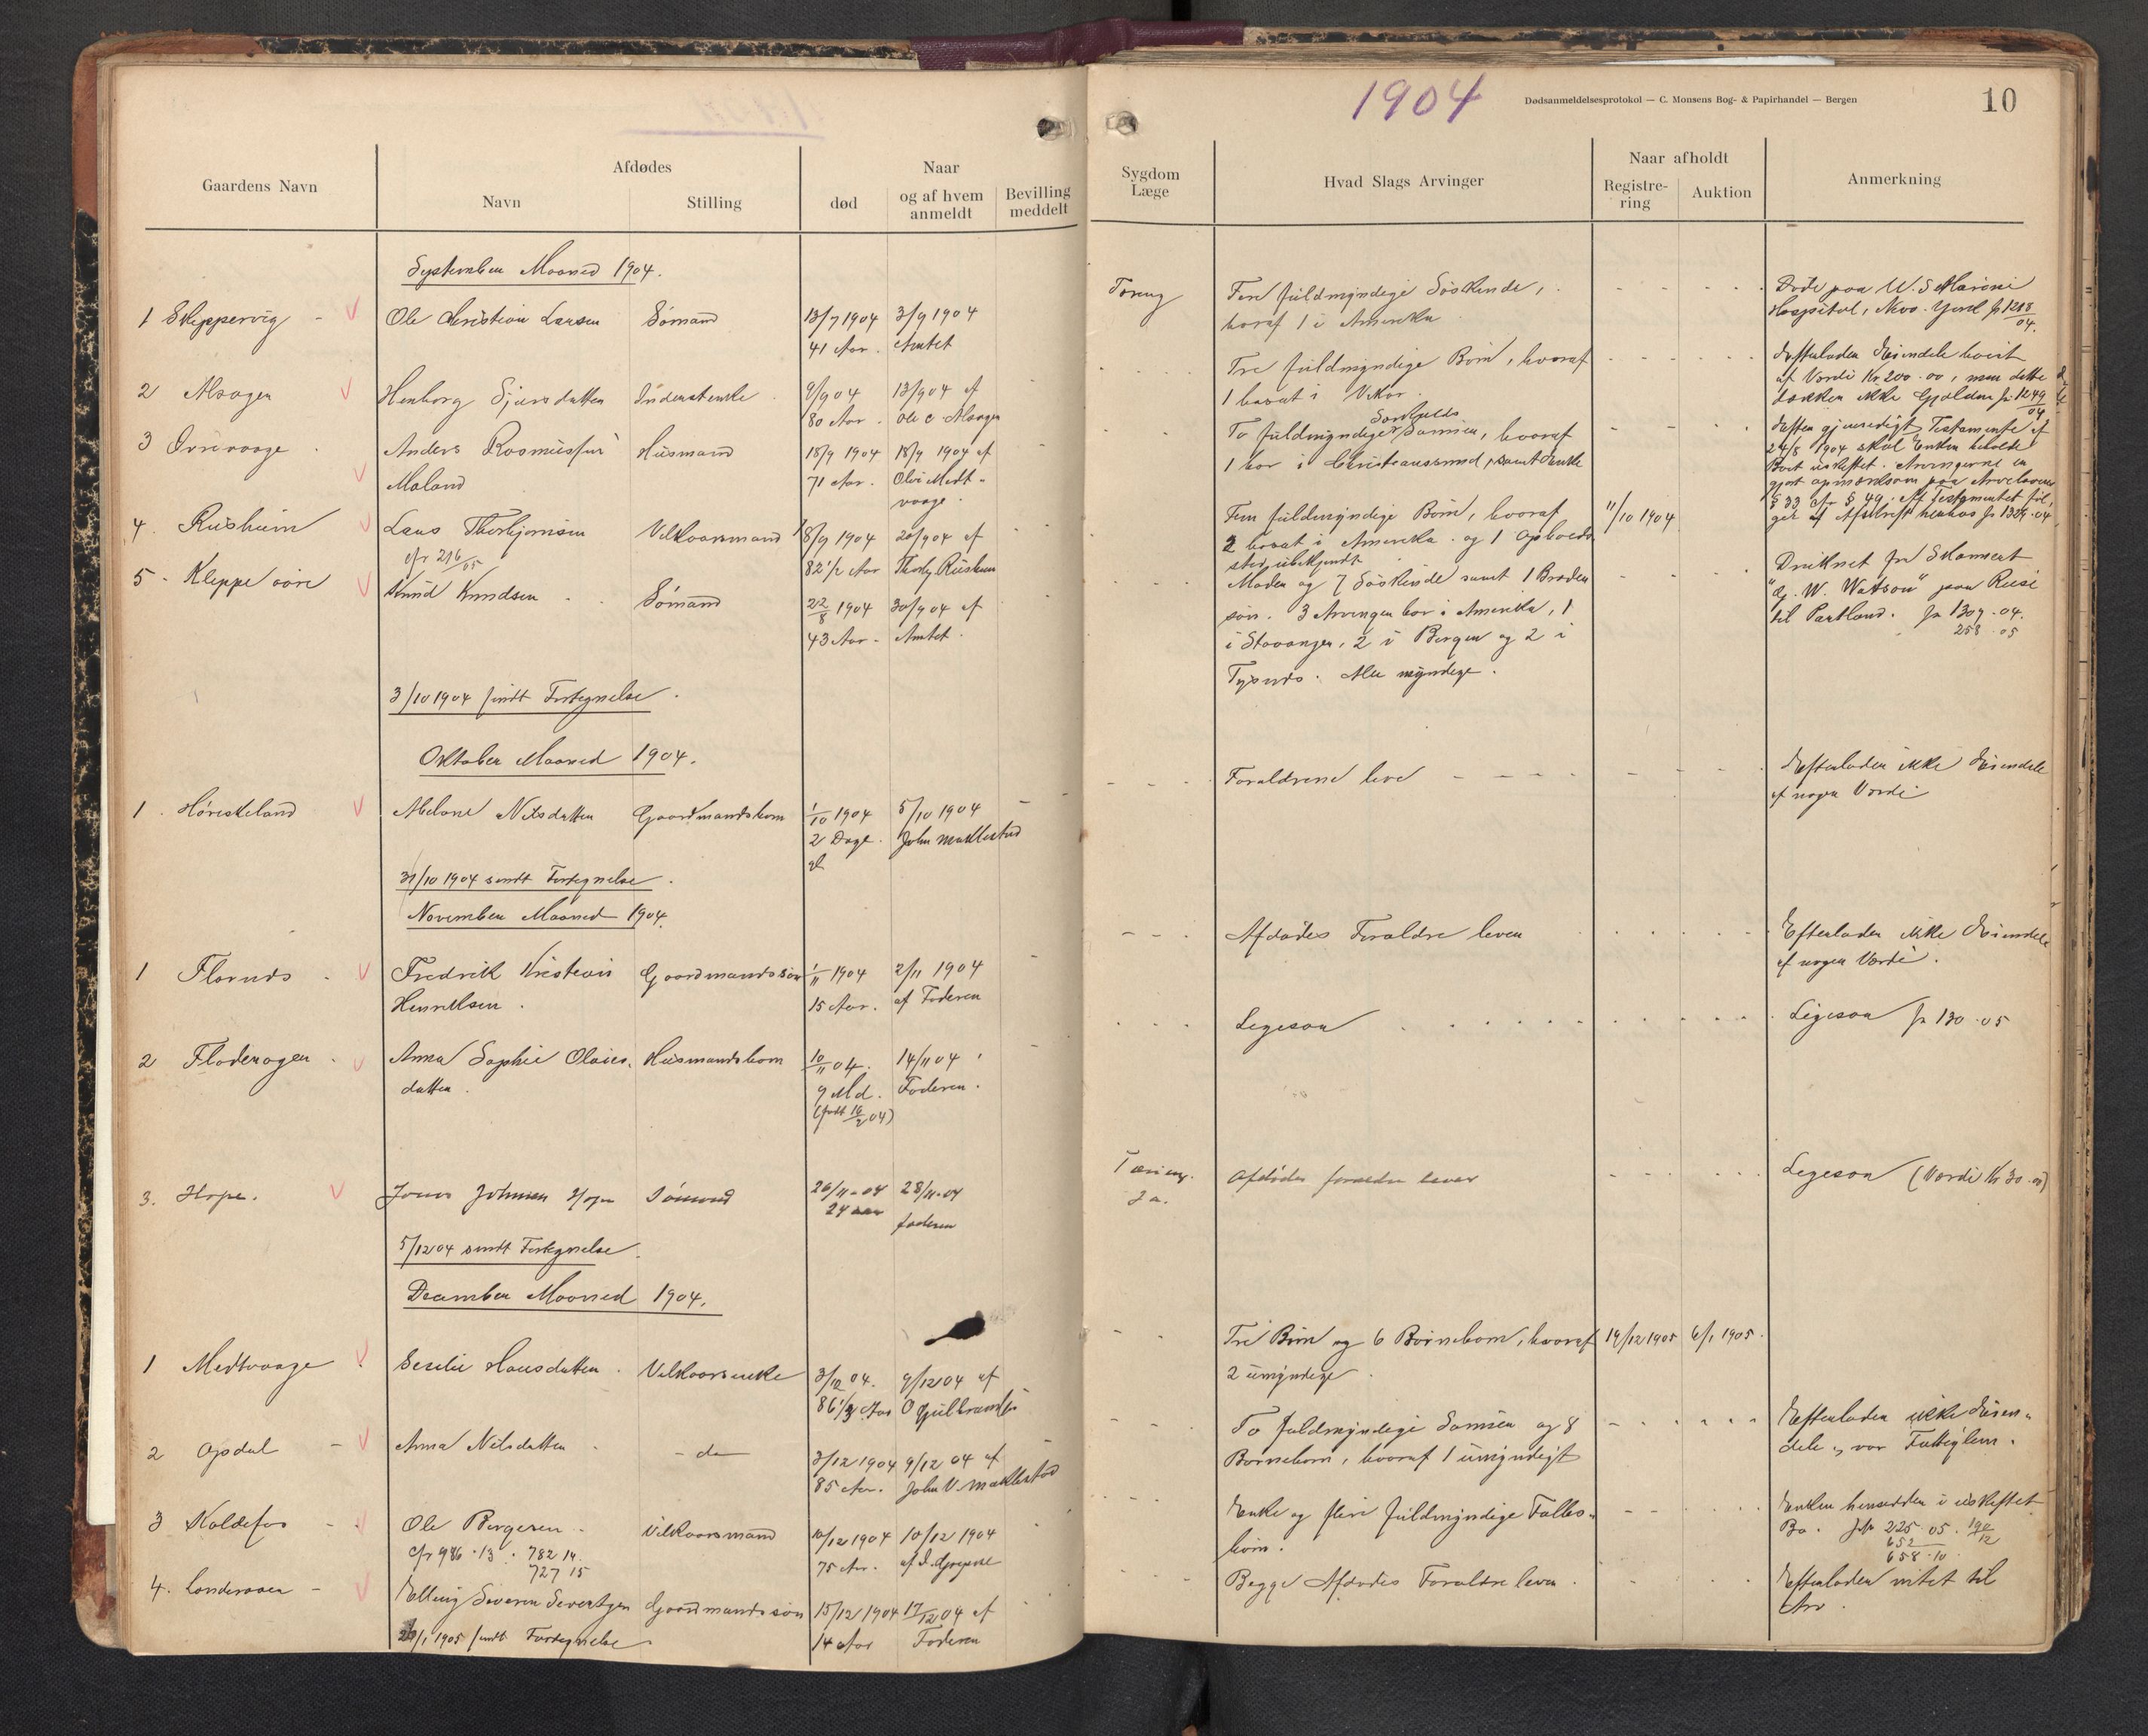 1904
Dødsanmeldelsesprotokol — C. Monsens Bog- & Papirhandel — Bergen
10
Gaardens Navn
Afdødes
Navn
Stilling
Naar
død
og af hvem anmeldt
Bevilling meddelt
Sygdom Læge
Hvad Slags Arvinger
Naar afholdt
Registrering
Auktion
Anmerkning
September Maaned 1904.
1 Skippervig Ole Christian Larsen Sømand 13/7 1904 3/9 1904 Fem fuldmyndige Søskende,
41 Aar. Amtet hvoraf 1 i Amerika
Døde paa U. S. Marine
Hospital, New-York jr 1208/04.
2 Alsagen Henborg Sjursdatter Inderstenke 9/904 13/904 af Tre fuldmyndige Børn, hvoraf
80 Aar. Ole C. Alsagen 1 bosat i Vikør
Efterlader Eiendele
af Værdi Kr. 200.00, men dette
dækker ikke Gjælden jr 1249/04
3 Anders Rasmussen Husmand 18/9 1904 18/9 1904 af To fuldmyndige Sønner, hvoraf
Maland 71 Aar. 1 bor i Christianssund, samt Enke
Testamente af
24/8 1904 skal Enken beholde
Boet uskiftet. Arvingerne er
gjort opmærksom paa Arvelovens
§ 33 cfr § 49. Af Testamentet føl-
ger af Afskrift jr 1329.04
4. Lars Thorbjørnsen Vilkaarsmand 18/9 1904 20/904 af Fem fuldmyndige Børn, hvoraf 11/10 1904
cfr 216/05 82 1/2 Aar 2 bosat i Amerika og 1 Opholds
sted ubekjendt
5. Kleppe øvre Knud Knudsen Sømand 22/8 1904 30/904 af Moder og 7 Søskende samt 1 Broder
43 Aar. Amtet. søn. 3 Arvinger bor i Amerika, 1
i Stavanger, 2 i Bergen og 2 i
Tysnes. Alle myndige.
Druknet fra Skonnert
W. Watson" paa Reise
til Portland. jr 1309.04.
258.05
3/10 1904 sendt Fortegnelse.
Oktober Maaned 1904.
1. Høviskeland Nilsdatter Gaardmandsbarn 1/10 1904 5/10 1904 Forældrene leve
2 Dage gl John Maklestad
Efterlader ikke Eiendele
af nogen Værdi
31/10 1904 sendt Fortegnelse.
November Maaned 1904.
1 Flornes Fredrik Kristian Gaardmandssøn 1/11 1904 2/11 1904 Afdødes Forældre lever
Henriksen. 15 Aar. af Faderen
Efterlader ikke Eiendele
af nogen Værdi.
2 Anna Sophie Olsdatter. Husmandsbarn 10/11 04. 14/11 04 Ligesom Ligesom jr 130.05
9 Md. Faderen.
(født 16/2 04)
3. Hope. Jonas Johnsen Hope Sømand 26/11-04 28/11-04 Tæring. Afdødes forældre lever Ligesom (Værdi Kr 30.00)
24 aar faderen Ja.
5/12 04 sendt Fortegnelse.
December Maaned 1904.
1 Medtvaage Sesilie Hansdatter. Vilkaarsenke 3/12 04. 9/12 04 af Tre Børn og 6 Børnebørn, hvoraf 19/12 1905 6/1 1905.
86 1/2 Aar O Gulbrandsen 2 umyndige.
2 Opdal Anna Nilsdatter - do 3/12 1904 9/12 04 af To fuldmyndige Sønner og 8
85 Aar. John V. Maklestad Børnebørn, hvoraf 1 umyndigt
Efterlader ikke Eien-
dele, var Fattiglem.
3 Koldefos Ole Børgesen Vilkaarsmand 10/12 1904 10/12 1904 Enke og flere fuldmyndige Fælles-
cfr 986.13. 782 14. 75 Aar. børn.
727 15
Enken hensidder i uskiftet
Bo. Jfr 225.05. 190/12
652
658.10
4. Elling Severin Sivertsen Gaardmandssøn 15/12 1904 17/12 04 af Begge Afdødes Forældre lever.
14 Aar Faderen
Efterlader intet til
Arv.
26/1 1905 sendt Fortegnelse.